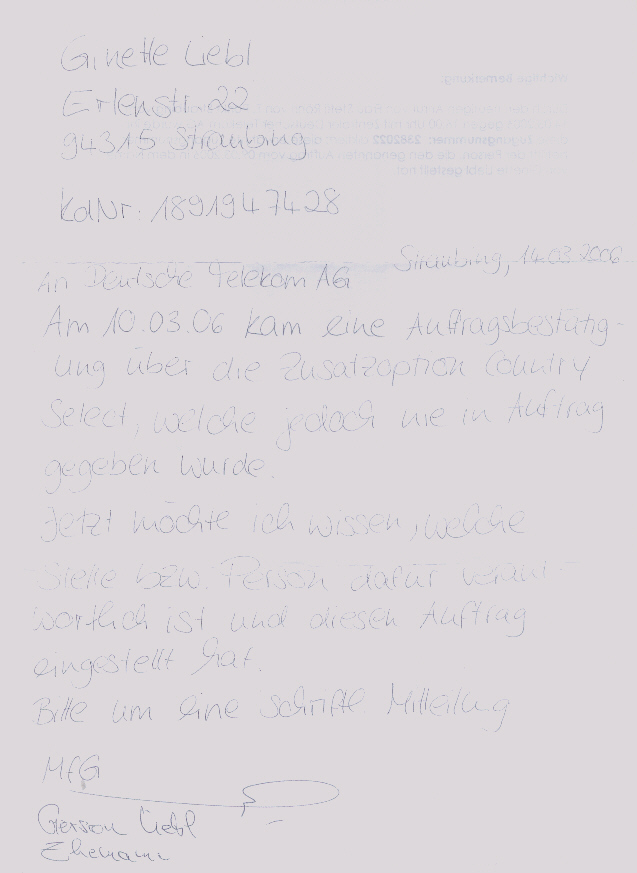 Ginette Liebl
Erlenstr. 22
94315 Straubing
KdNr: 1891947428
Straubing, 14.03.2006
An Deutsche Telekom AG
Am 10.03.06 kam eine Auftragsbestätig-
ung über die Zusatzoption Country
Select, welche jedoch nie in Auftrag
gegeben wurde.
Jetzt möchte ich wissen, welche
Stelle bzw. Person dafür verant-
wortlich ist und diesen Auftrag
eingestellt hat.
Bitte um eine schriftl Mitteilung
MfG
Gerson Liebl
Ehemann